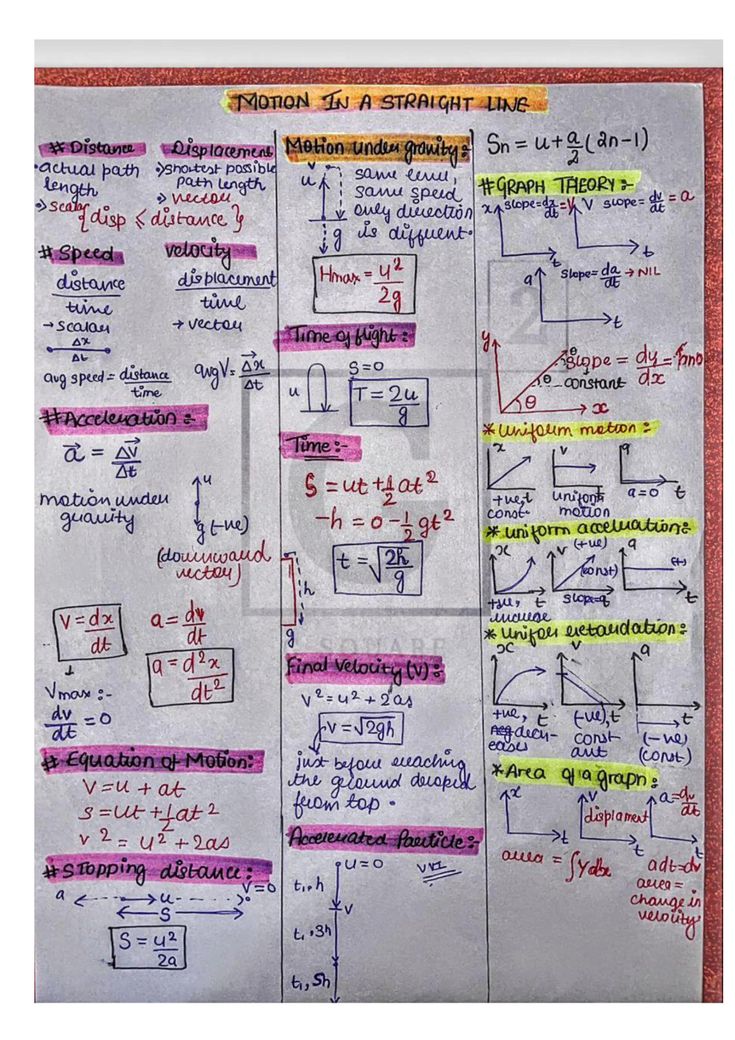 MOTION IN A STRAIGHT LINE
# Distance
• actual path
length
→ scalar
Displacement
→ shortest possible
path length
→ vector
{disp ≤ distance}
# Speed
distance
time
→ scalar
Δx
Δt
velocity
displacement
time
→ vector
avg speed = distance
time
avg V = Δx
Δt
# Acceleration :-
a = Δv
Δt
motion under
gravity
u
g (-ve)
(downward
vector)
V = dx
dt
a = dv
dt
Vmax :-
dv = 0
dt
a = d²x
dt²
# Equation of Motion:
V = u + at
s = ut + 1/2 at²
v² = u² + 2as
# Stopping distance:
a u V=0
S
S = u²
2a
Motion under gravity:
v
u
same level,
same speed
only direction
is different.
g
Hmax = u²
2g
Time of flight :
u
S=0
T = 2u
g
Time :-
S = ut + 1/2 at²
-h = 0 - 1/2 gt²
t = √2h
g
h
g
SQUARE
Final Velocity (V) :
v² = u² + 2as
v = √2gh
just before reaching
the ground droped
from top.
Accelerated Particle :-
u=0
t₁, h
v
t₁, 3h
t₁, 5h
VVI
Sn = u + a/2 (2n-1)
# GRAPH THEORY :-
x slope = dx/dt = V
t
V slope = dv/dt = a
t
a slope = da/dt → NIL
t
y
θ
θ
θ
constant
x
slope = dy = tanθ
dx
* Uniform motion :-
x
t
+ve,
const
v
t
uniform
motion
a
t
a=0
* uniform acceleration:
x
t
+ve,
increase
V (+ve)
(const)
t
slope=a
a
(+)
t
* Uniform retardation :
x
t
+ve,
decr-
eases
v
t
(-ve),
const
ant
a
t
(-ve)
(const)
* Area of a graph:
x
t
V
displament
t
a = dv
dt
t
area = ∫Y dx
adt = dv
area =
change in
velocity